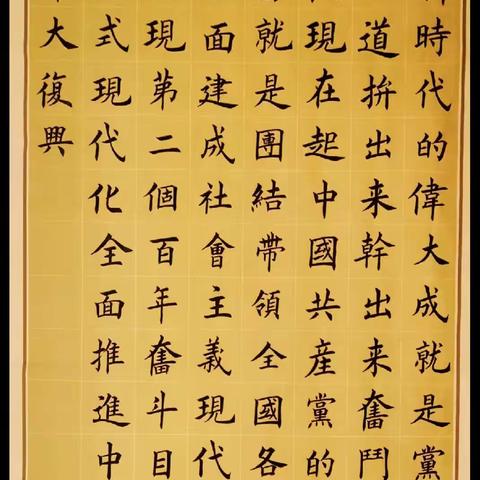 時代的偉大成就是黨
道拚出来幹出来奮鬥
現在起中國共産黨的
就是團結帶領全國各
面建成社會主義現代
現第二個百年奮斗目
式現代化全面推進中
大復興